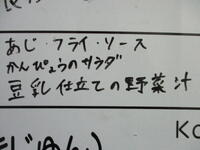 あじ・フライ・ソース
かんぴょうのサラダ
豆乳仕立ての野菜汁